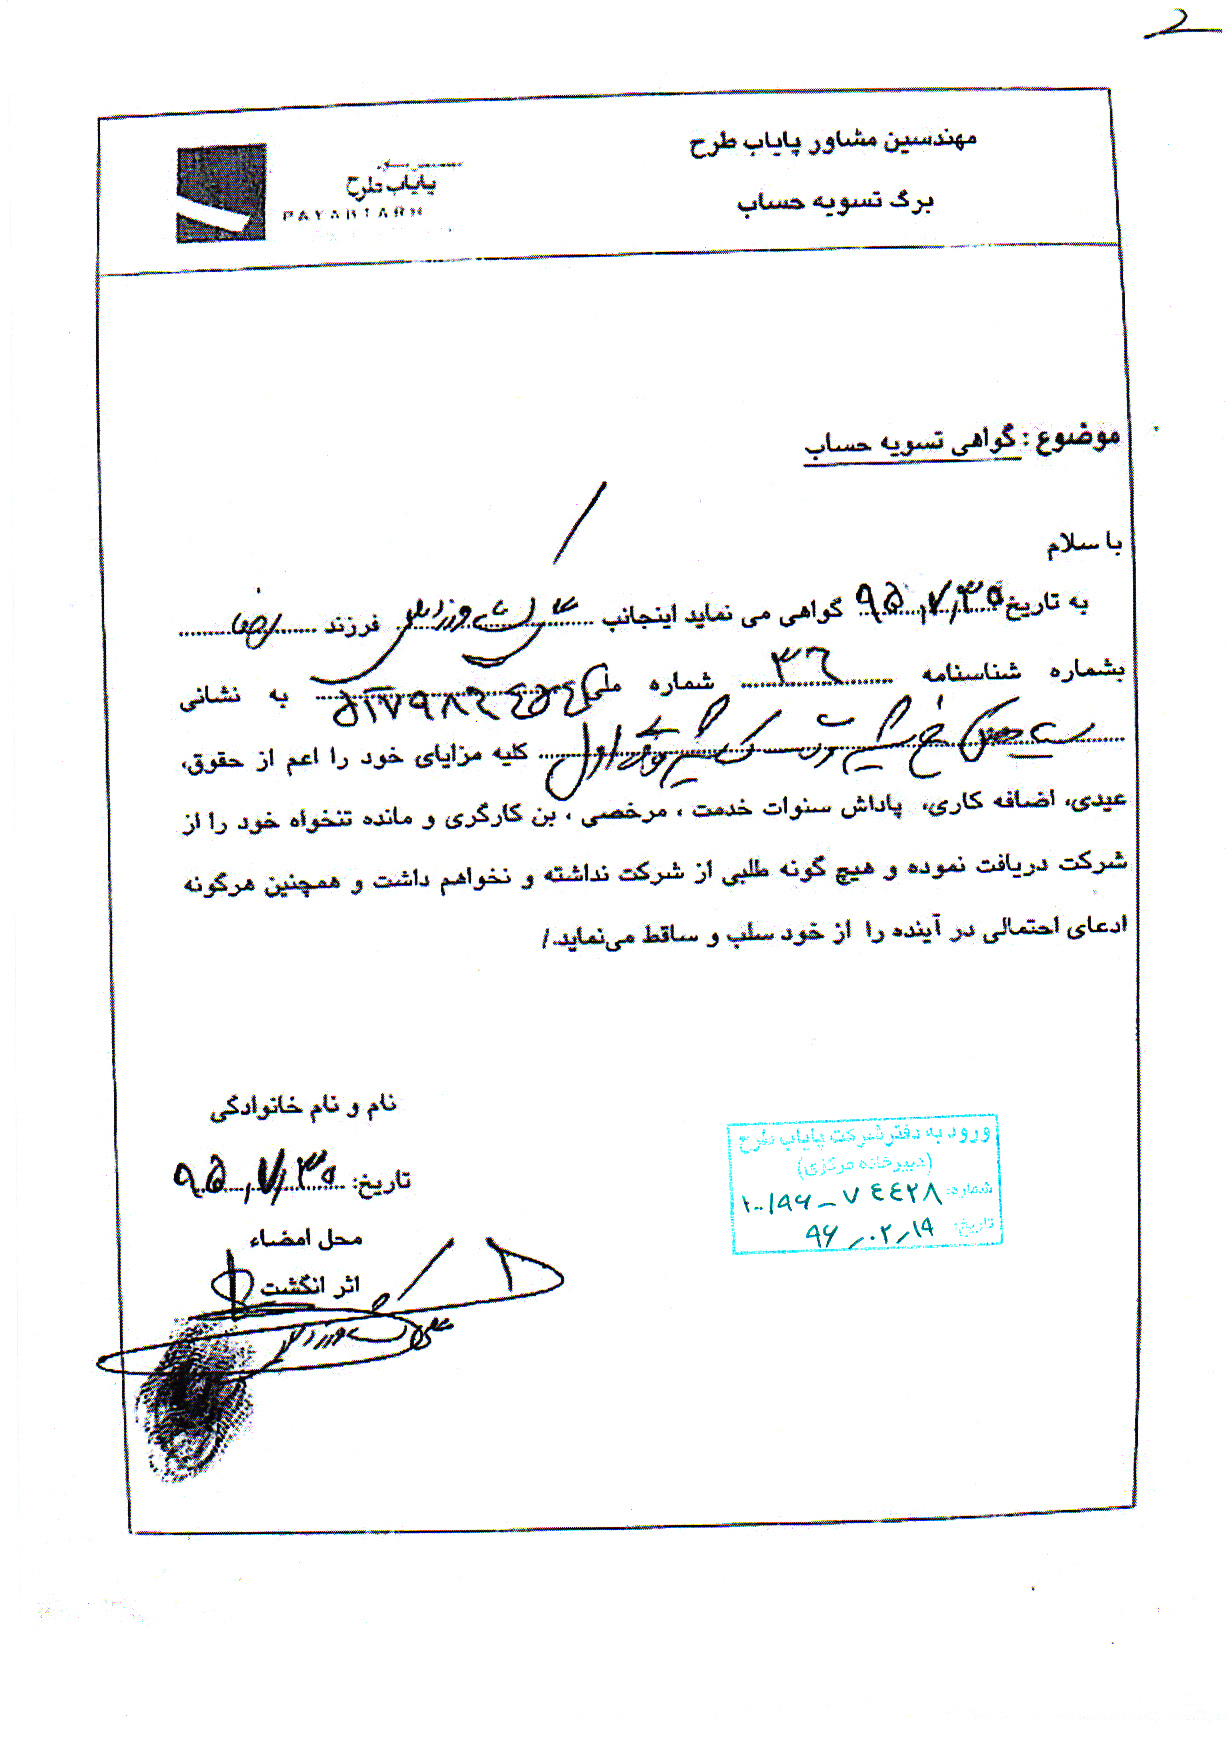 2
مهندسین مشاور پایاب طرح
پایاب طرح
PAYABTARH
برگ تسویه حساب
موضوع : گواهی تسویه حساب
با سلام
به تاریخ ۹۵,۷,۳۰ گواهی می نماید اینجانب علی کشاورز فرزند رضا
بشماره شناسنامه ۳۶ شماره ملی به نشانی
کلیه مزایای خود را اعم از حقوق،
عیدی، اضافه کاری، پاداش سنوات خدمت ، مرخصی ، بن کارگری و مانده تنخواه خود را از
شرکت دریافت نموده و هیچ گونه طلبی از شرکت نداشته و نخواهم داشت و همچنین هرگونه
ادعای احتمالی در آینده را از خود سلب و ساقط می‌نماید./
نام و نام خانوادگی
تاریخ: ۹۵,۷,۳۰
محل امضاء
اثر انگشت
ورود به دفتر شرکت پایاب طرح
(دبیرخانه مرکزی)
شماره: ۱۰۰/۹۶ - ۷۴۴۲۸
تاریخ: ۹۶,۰۲,۱۹